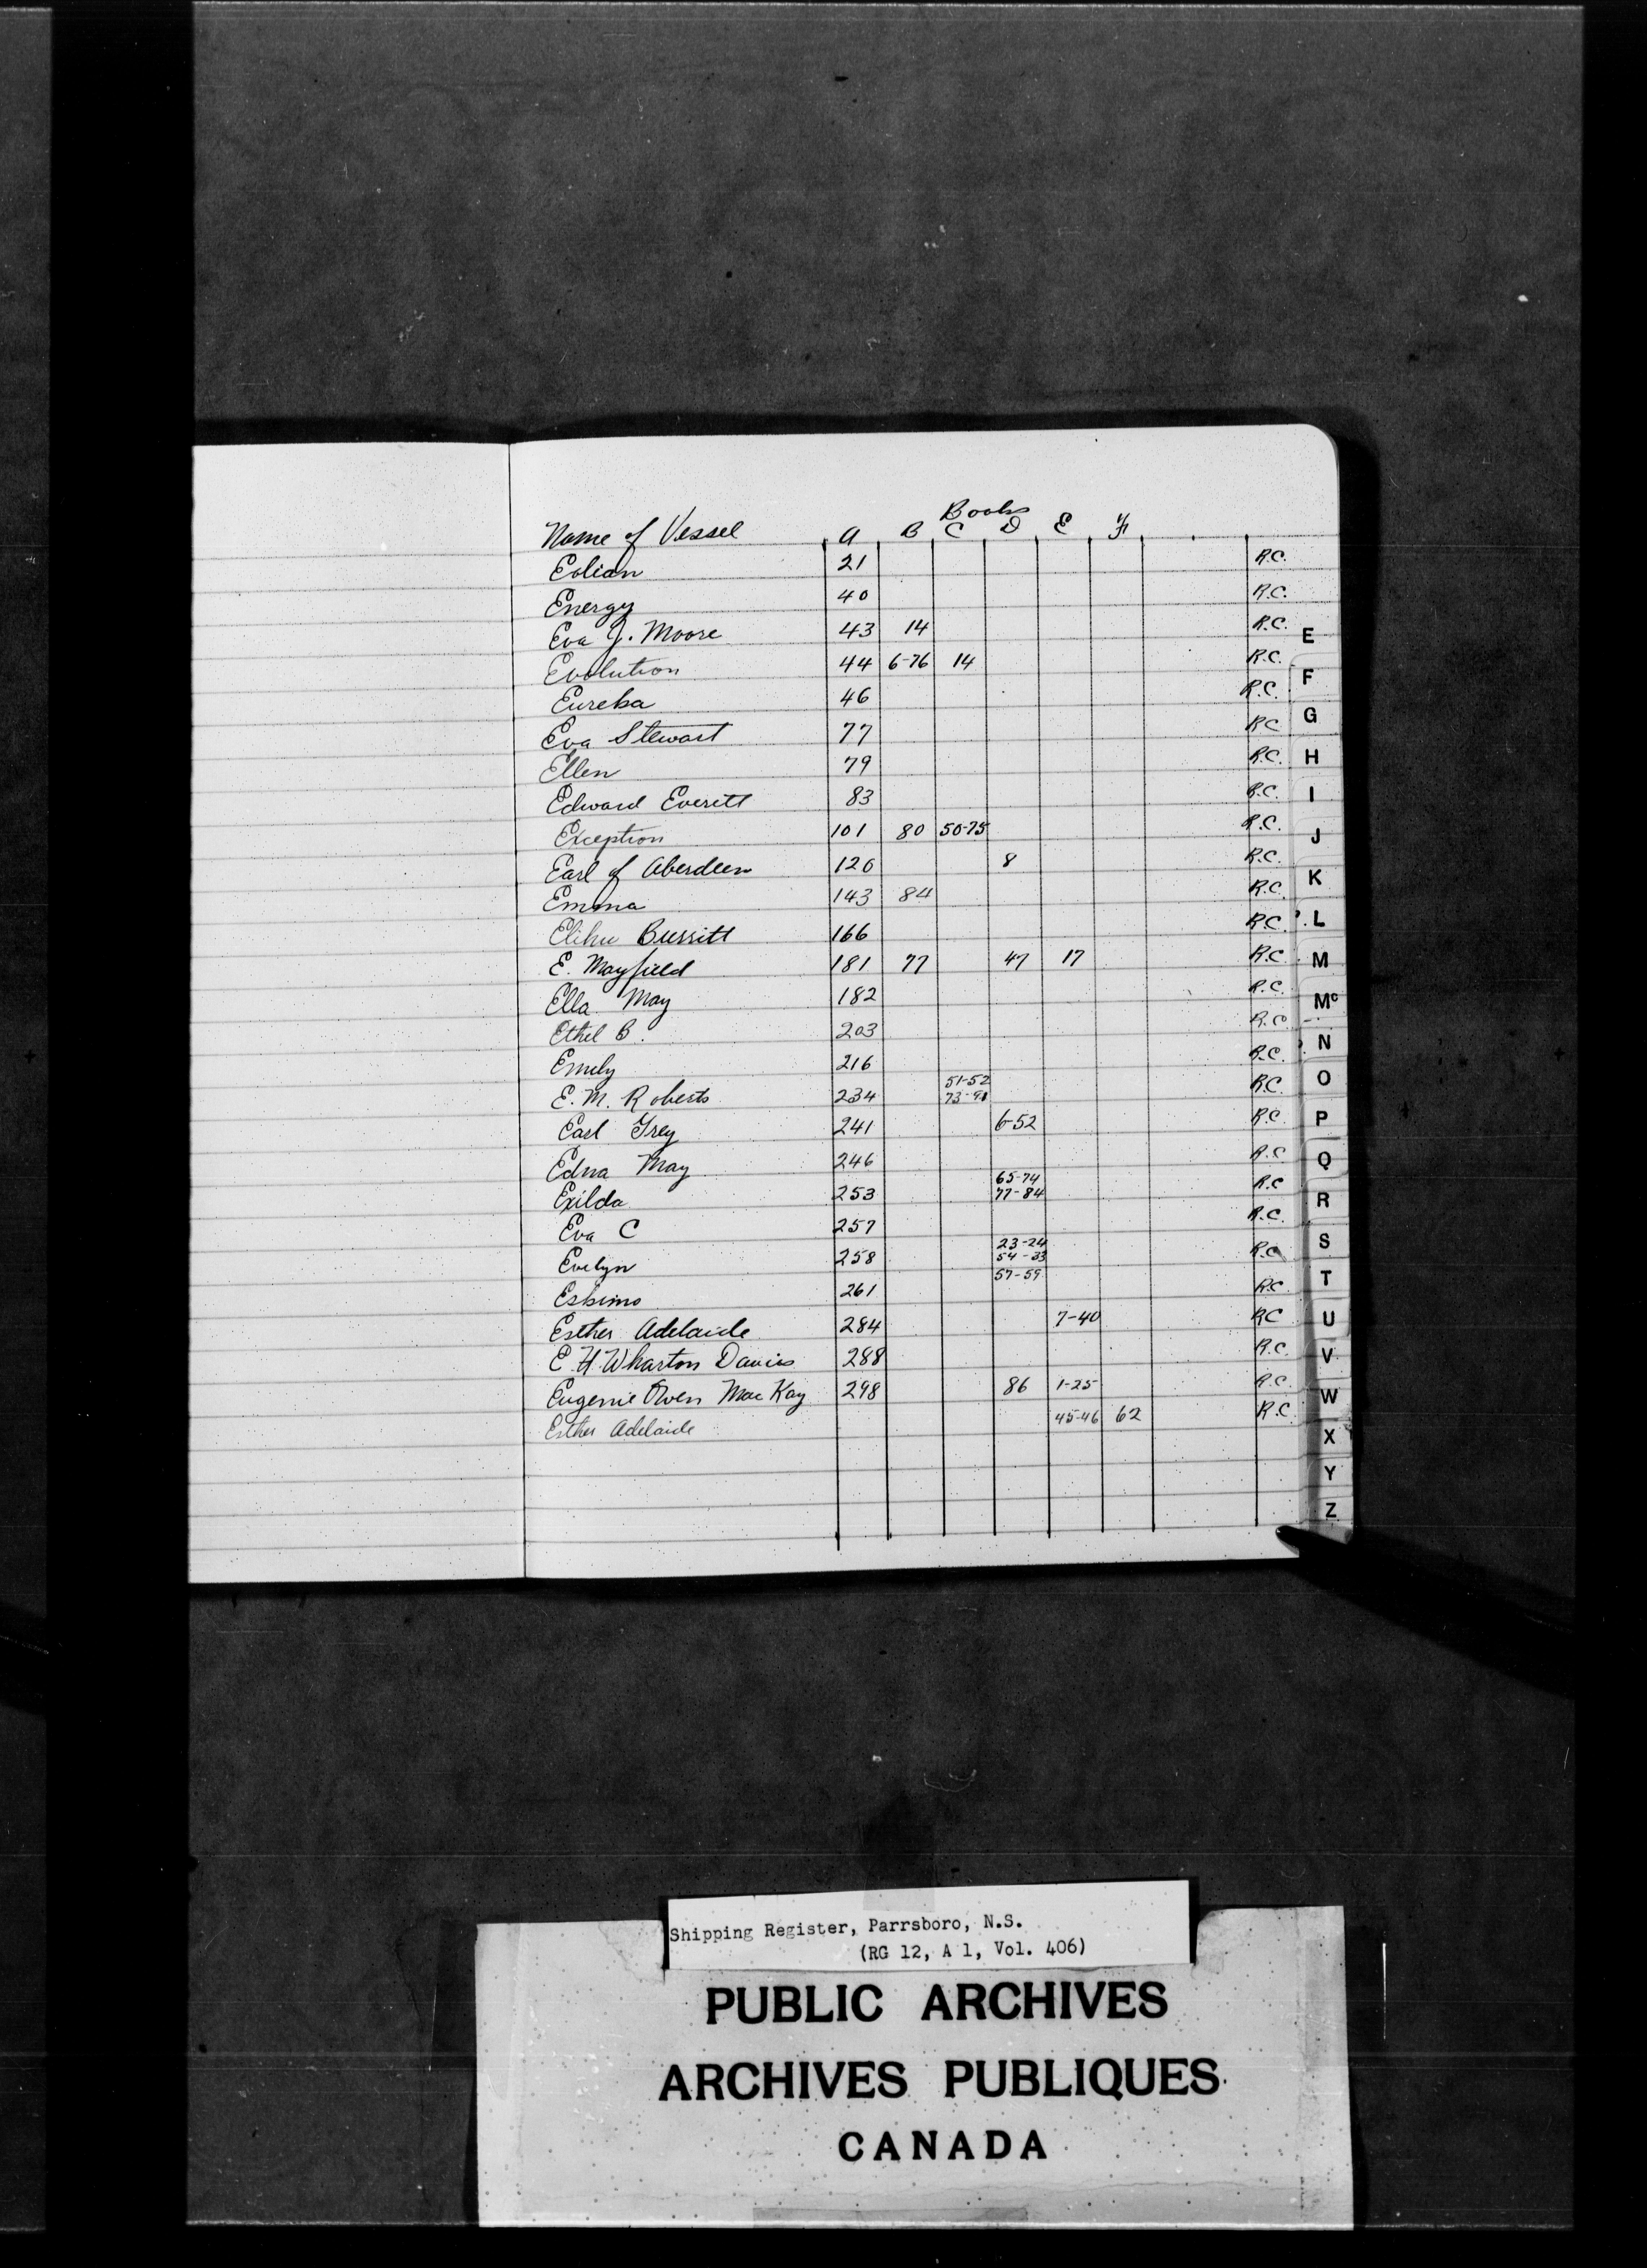 Books
Name of Vessel A B C D E F
Eolian 21 R.C.
Energy 40 R.C.
Eva J. Moore 43 14 R.C.
Evolution 44 6-76 14 R.C.
Eureka 46 R.C.
Eva Stewart 77 R.C
Ellen 79 R.C.
Edward Everitt 83 R.C.
Exception 101 80 50-75 R.C.
Earl of Aberdeen 126 8 R.C.
Emma 143 84 R.C.
Elihu Burritt 166 R.C.
E. Mayfield 181 77 47 17 R.C
Ella May 182 R.C.
Ethel B. 203 R.C
Emily 216 R.C.
E. M. Roberts 234 51-52 73-91 R.C.
Earl Grey 241 6-52 R.C
Edna May 246 R.C
Exilda 253 65-74 77-84 R.C
Eva C 257 R.C.
Evelyn 258 23-24 54-33 R.C
Eskimo 261 57-59 R.C
Esther Adelaide 284 7-40 RC
E. H. Wharton Davies 288 R.C.
Eugenie Owen MacKay 298 86 1-25 R.C.
Esther Adelaide 45-46 62 R.C
E
F
G
H
I
J
K
L
M
Mc
N
O
P
Q
R
S
T
U
V
W
X
Y
Z
Shipping Register, Parrsboro, N.S.
(RG 12, A 1, Vol. 406)
PUBLIC ARCHIVES
ARCHIVES PUBLIQUES
CANADA